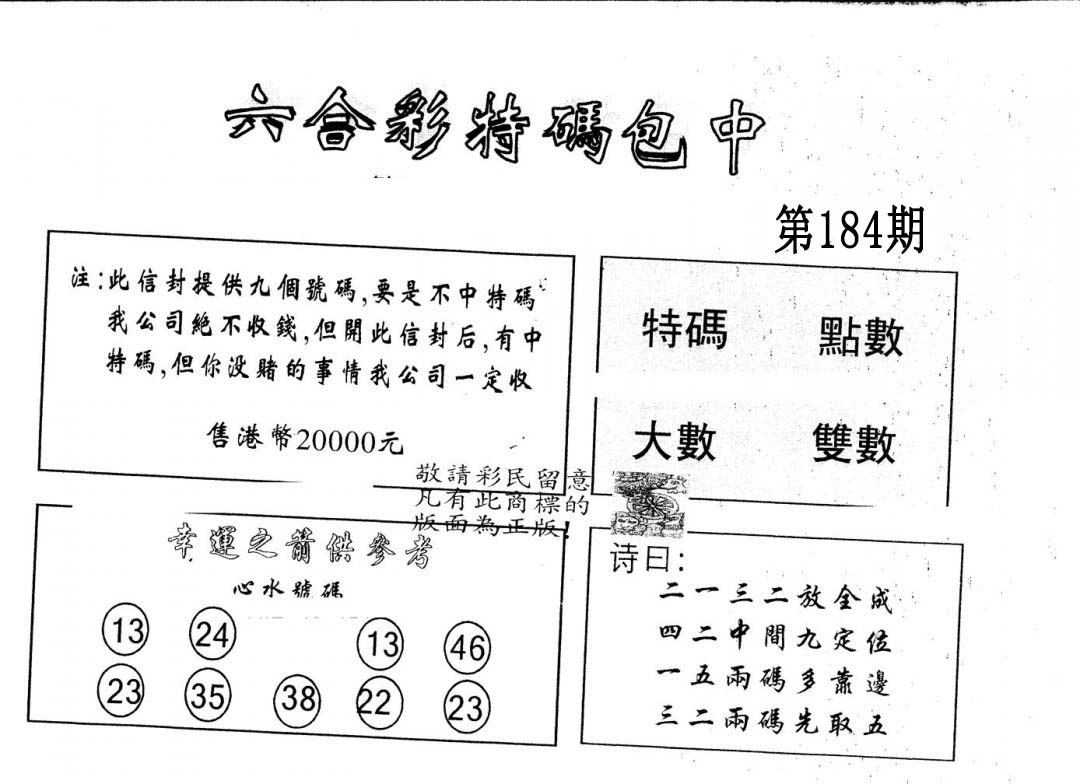 六合彩特碼包中
第184期
注:此信封提供九個號碼,要是不中特碼
我公司絕不收錢,但開此信封后,有中
特碼,但你没賭的事情我公司一定收
售港幣20000元
特碼 點數
大數 雙數
敬請彩民留意
凡有此商標的
版面為正版!
幸運之箭供參考
心水號碼
13 24 13 46
23 35 38 22 23
诗曰:
二一三二放全成
四二中間九定位
一五兩碼多靠邊
三二兩碼先取五